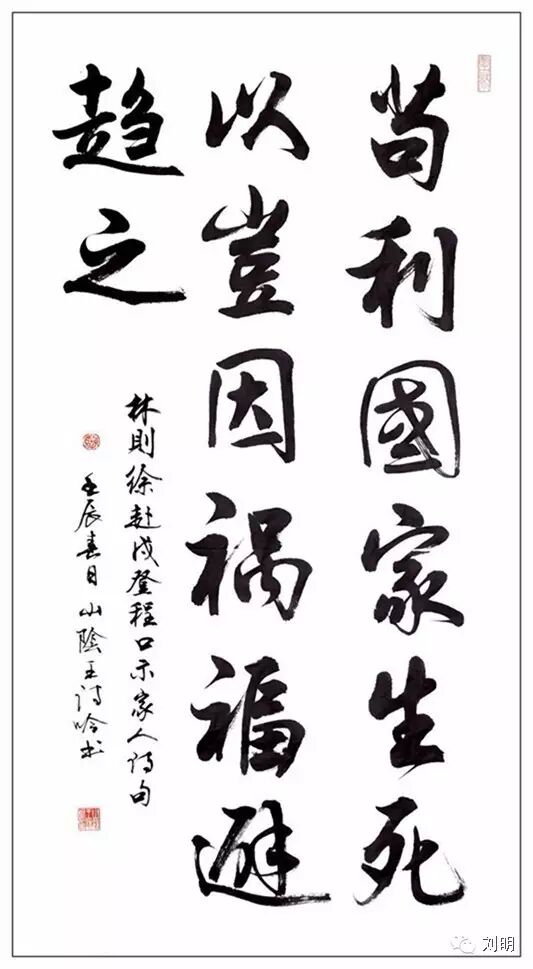 苟利國家生死
以豈因祸福避
趋之
林则徐赴戍登程口示家人诗句
壬辰春日山陰王诗吟书
刘明